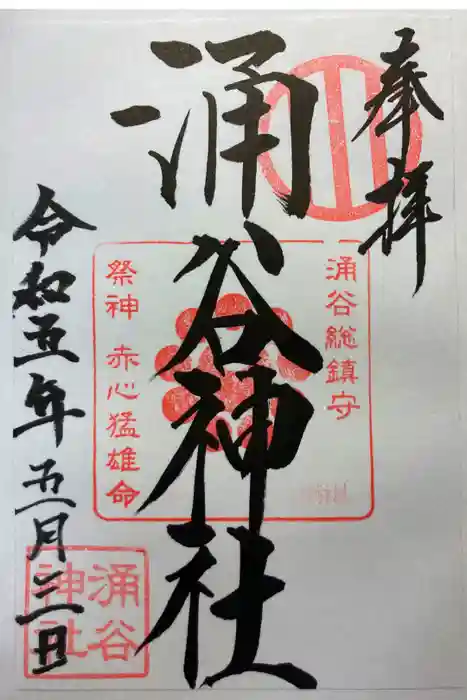 奉拝
涌谷総鎮守
涌谷神社
祭神 赤心猛雄命
令和五年五月三日
涌谷神社